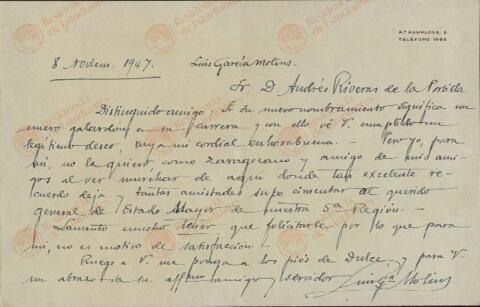 Pº PAMPLONA, 2
TELÉFONO 1662
8 Noviem. 1947.
Luis García Molins.
Sr. D Andrés Riveras de la Portilla
Distinguido amigo: Si su nuevo nombramiento significa un
nuevo galardón a su carrera y con ello vé V. cumplido un
legítimo deseo, vaya mi cordial enhorabuena. - Pero yo, para
mi, no la quiero como zaragozano y amigo de mis ami-
gos al ver marchar de aqui donde tan excelente re-
cuerdo deja y tantas amistades supo cimentar al querido
general de Estado Mayor de nuestra 5ª Región. -
Lamento mucho tener que felicitarle por lo que para
mi, no es motivo de satisfacción. -
Ruego a V. me ponga a los piés de Dulce, y para V.
un abrazo de su affmo amigo y servidor Luis Gª Molins
Residencia
de Estudiantes